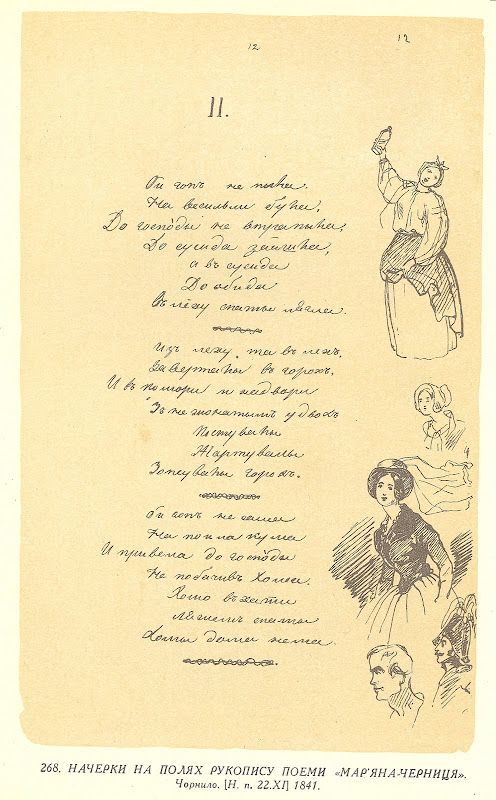 12 12
II.
Ой гопъ не пыла.
На весильли була,
До господы не втрапыла,
До сусида зайшла,
а въ сусида
До обида
Въ лёху спаты лягла.
Изъ лёху, та въ лехъ,
Заверталы въ горохъ,
И въ комори и надвори
Зъ нежонатымъ удвохъ
Пустувалы
Жартувалы
Зопсувалы горохъ.
Ой гопъ не сама
Напоила кума
И привела до господы
Не побачивъ Хома.
Хомо въ хати
Ляжемъ спаты
Хомы дома нема.
268. НАЧЕРКИ НА ПОЛЯХ РУКОПИСУ ПОЕМИ «МАР'ЯНА-ЧЕРНИЦЯ».
Чорнило. [Н. п. 22.XI] 1841.